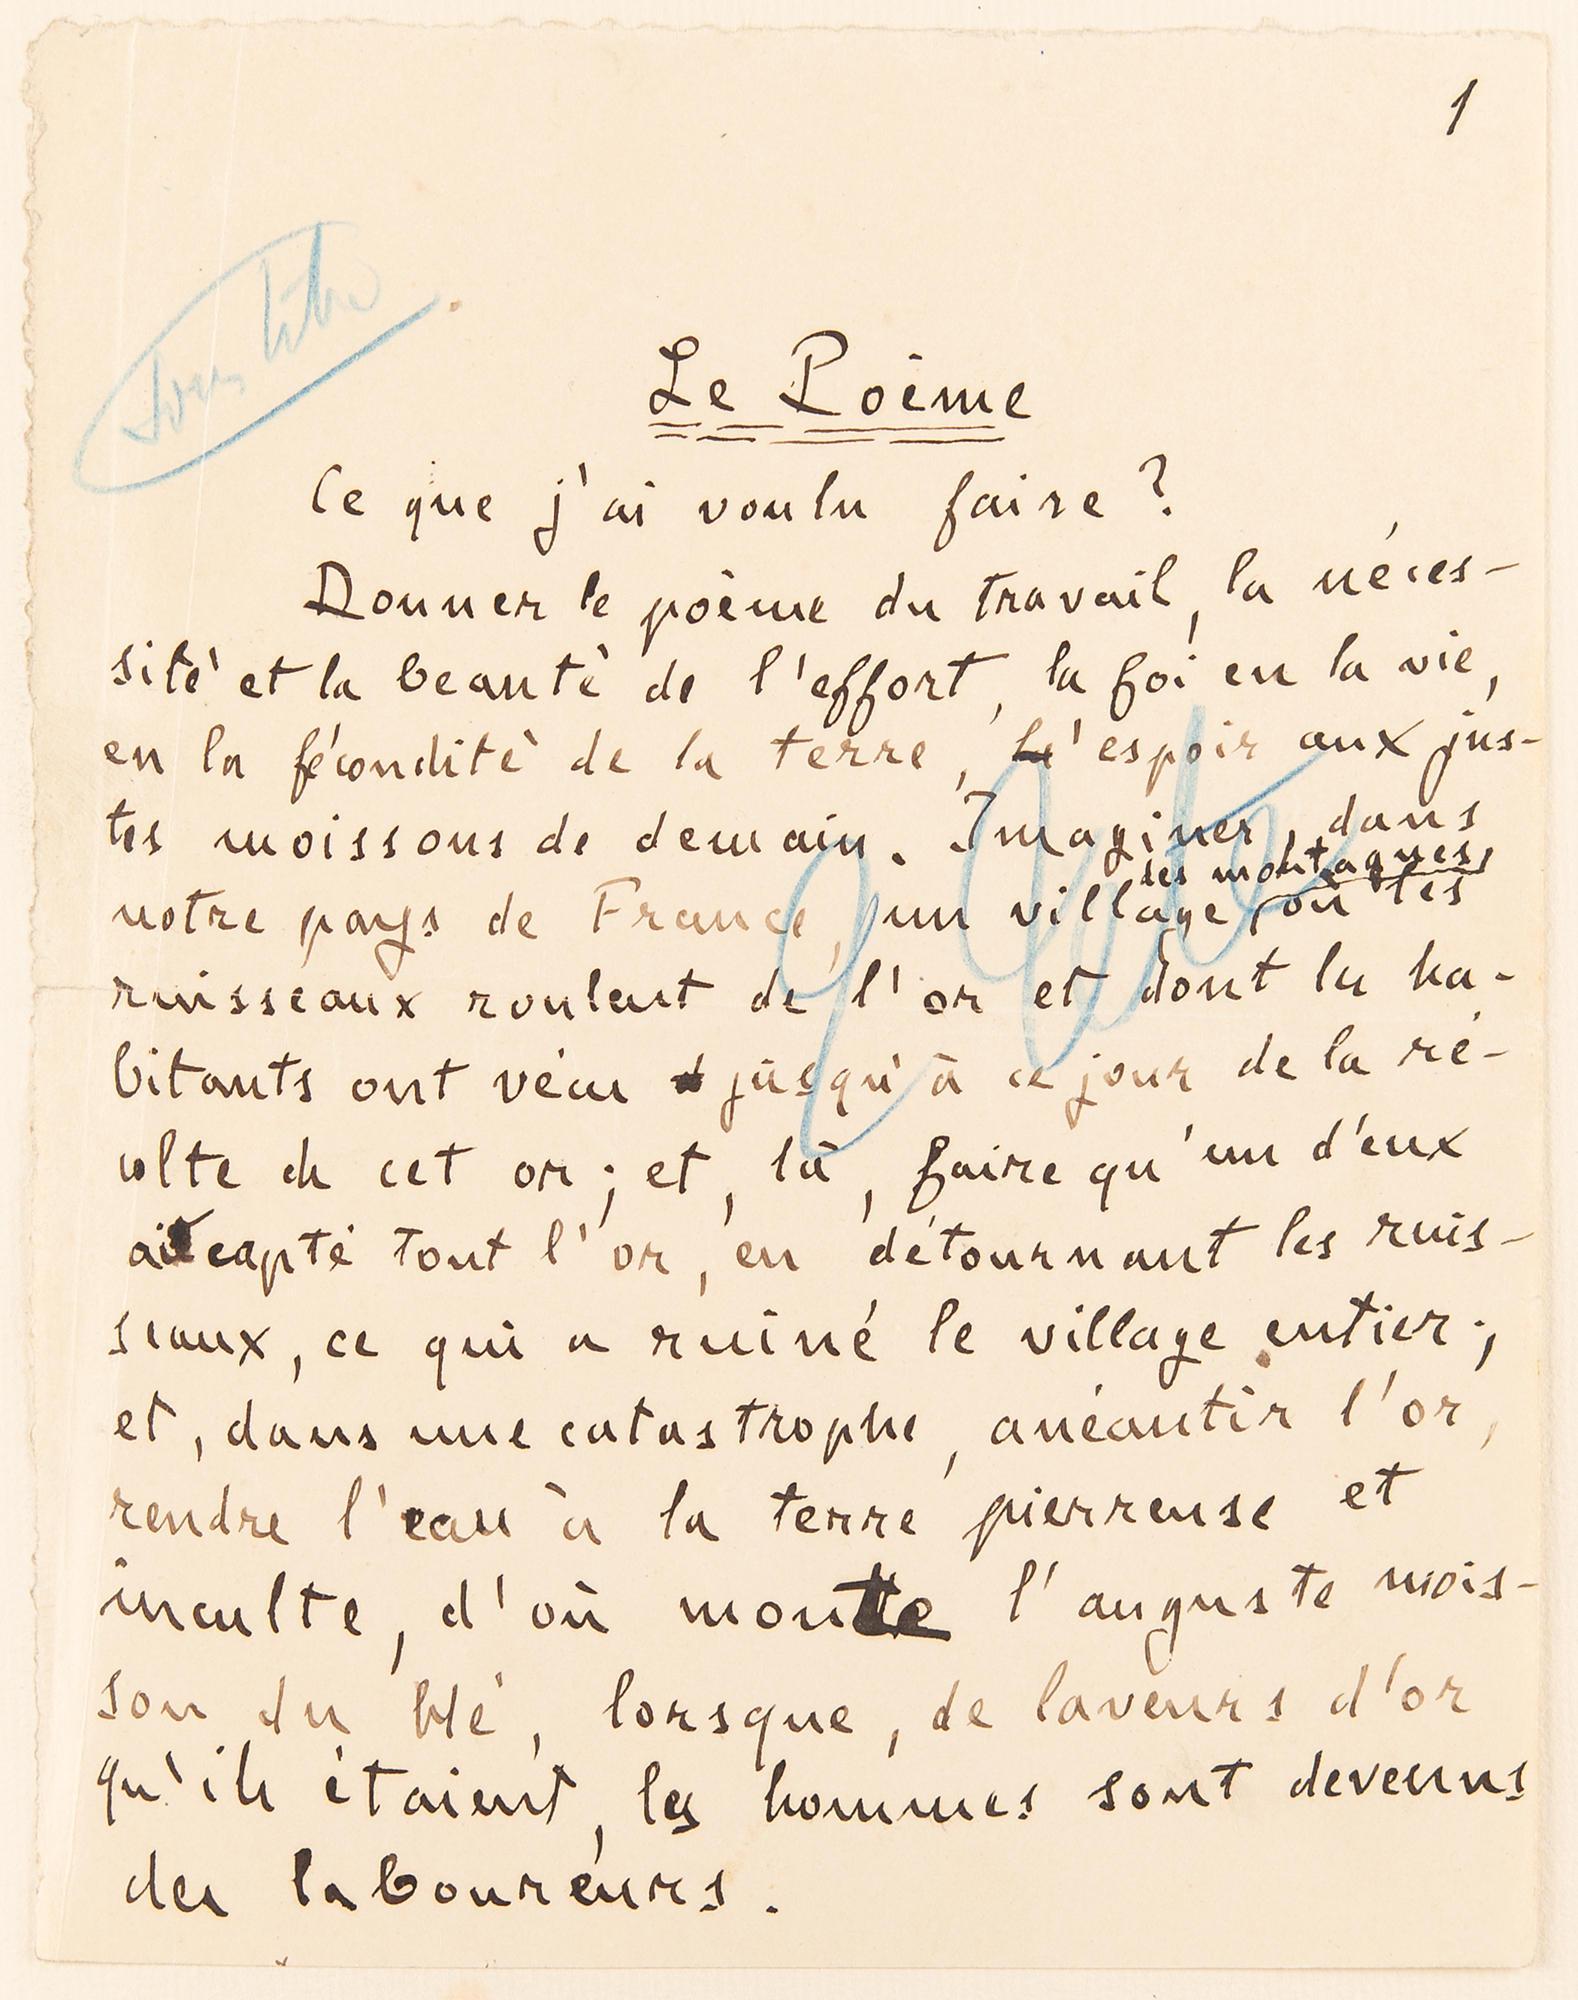 1
Sous titre
Le Poème
Ce que j'ai voulu faire ?
Donner le poème du travail, la néces-
sité et la beauté de l'effort, la foi en la vie,
en la fécondité de la terre, l'espoir aux jus-
tes moissons de demain. Imaginer, dans
des montagnes,
notre pays de France, un village, où les
ruisseaux roulent de l'or et dont les ha-
bitants ont vécu jusqu'à ce jour de la ré-
colte de cet or ; et, là, faire qu'un d'eux
ait capté tout l'or, en détournant les ruis-
seaux, ce qui a ruiné le village entier ;
et, dans une catastrophe, anéantir l'or,
rendre l'eau à la terre pierreuse et
inculte, d'où monte l'auguste mois-
son du blé, lorsque, de laveurs d'or
qu'ils étaient, les hommes sont devenus
des laboureurs.